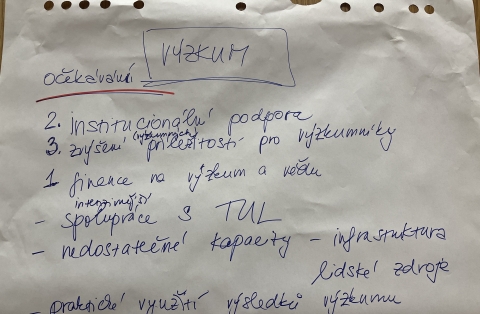 VÝZKUM
očekávání
2. institucionální podpora
3. zvýšení (výzkumných) příležitostí pro výzkumníky
1. finance na výzkum a vědu
intenzivnější
- spolupráce s TUL
- nedostatečné kapacity - infrastruktura
lidské zdroje
- praktické využití výsledků výzkumu